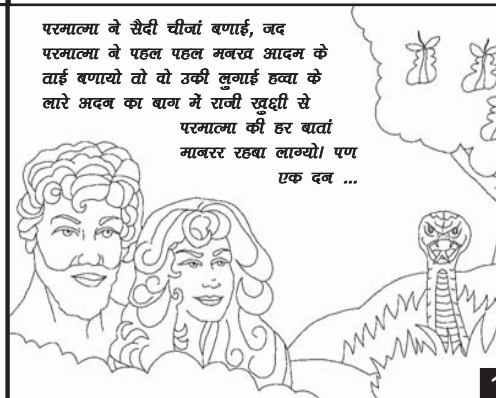 परमात्मा ने सैदी चीजां बणाई, जद
परमात्मा ने पहल पहल मनख आदम के
ताई बणायो तो वो उकी लुगाई हव्वा के
लारे अदन का बाग में राजी खुक्षी से
परमात्मा की हर बातां
मानरर रहबा लाग्यो। पण
एक दन ...
1